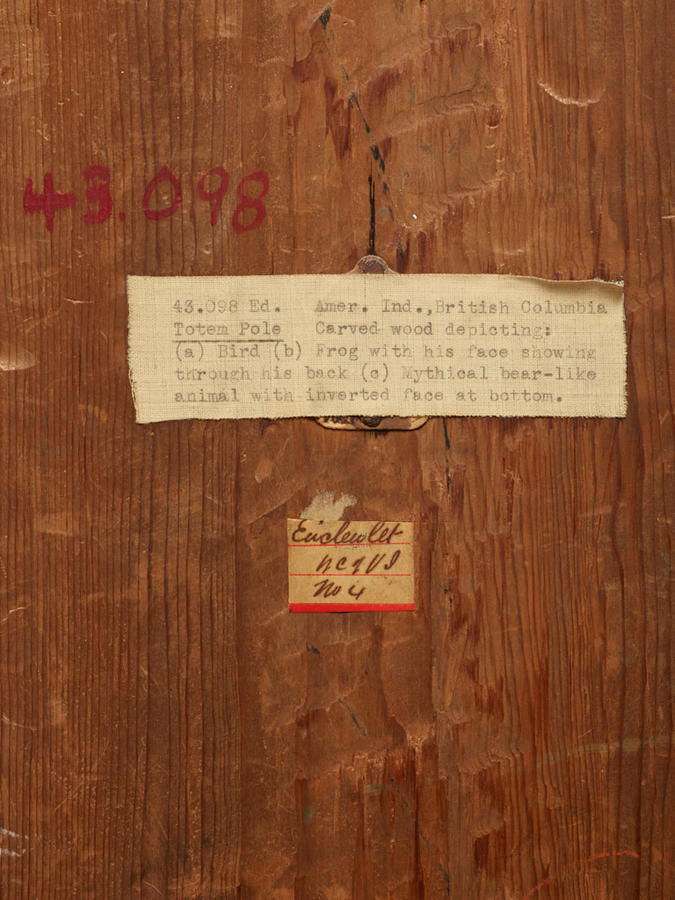 43.098
43.098 Ed. Amer. Ind.,British Columbia
Totem Pole Carved wood depicting:
(a) Bird (b) Frog with his face showing
through his back (c) Mythical bear-like
animal with inverted face at bottom.
No 4